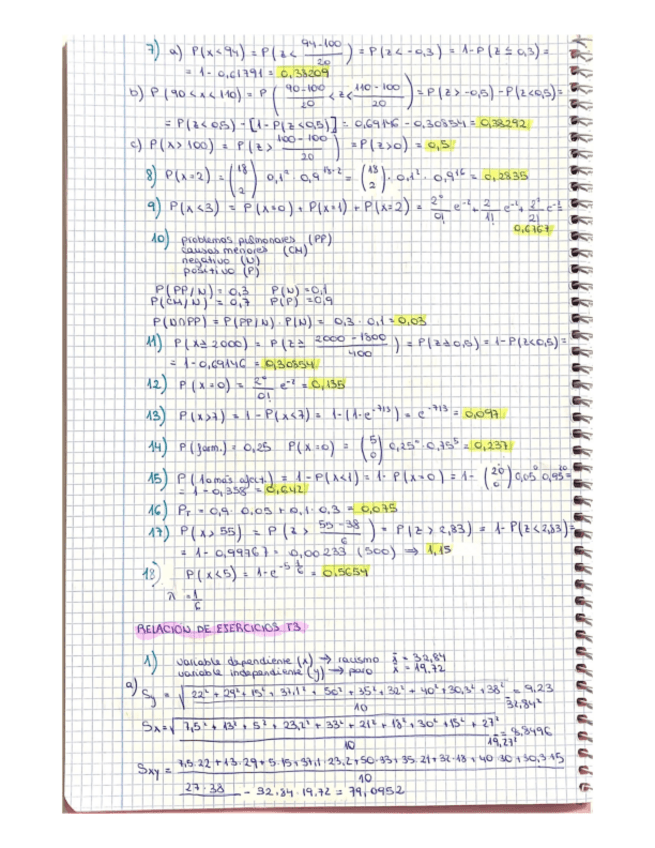 7) a) P(x<94) = P(z < (94-100)/20) = P(z < -0,3) = 1-P(z ≤ 0,3) =
= 1-0,61791 = 0,38209
b) P(90<x<110) = P((90-100)/20 < z < (110-100)/20) = P(z > -0,5) - P(z<0,5) =
= P(z<0,5) - [1-P(z<0,5)] = 0,69146 - 0,30854 = 0,38292
c) P(x>100) = P(z > (100-100)/20) = P(z>0) = 0,5
8) P(x=2) = (18 2) 0,1² · 0,9^18-2 = (18 2) · 0,1² · 0,9^16 = 0,2835
9) P(x<3) = P(x=0) + P(x=1) + P(x=2) = 2⁰/0! e^-2 + 2/1! e^-2 + 2²/2! e^-2
0,6767
10) problemas pulmonares (PP)
causas menores (CM)
negativo (N)
positivo (P)
P(PP/N) = 0,3 P(N) = 0,1
P(CM/N) = 0,7 P(P) = 0,9
P(N∩PP) = P(PP/N) · P(N) = 0,3 · 0,1 = 0,03
11) P(x≥2000) = P(z ≥ (2000-1800)/400) = P(z≥0,5) = 1-P(z<0,5) =
= 1-0,69146 = 0,30854
12) P(x=0) = 2⁰/0! e^-2 = 0,135
13) P(x>7) = 1-P(x<7) = 1-(1-e^-7/3) = e^-7/3 = 0,097
14) P(form.) = 0,25 P(x=0) = (5 0) 0,25⁰ · 0,75⁵ = 0,237
15) P(1 o más afect.) = 1-P(x<1) = 1-P(x=0) = 1-(20 0) 0,05⁰ 0,95^20 =
= 1-0,358 = 0,642
16) Pr = 0,9 · 0,05 + 0,1 · 0,3 = 0,075
17) P(x>55) = P(z > (55-38)/6) = P(z > 2,83) = 1-P(z<2,83) =
= 1-0,99767 = 0,00233 (500) ⇒ 1,15
18) P(x<5) = 1-e^-5·1/6 = 0,5654
λ = 1/6
RELACIÓN DE EJERCICIOS T3
1) variable dependiente (x) → racismo ȳ = 32,84
variable independiente (y) → paro x̄ = 19,72
a) Sy = √(22² + 29² + 15² + 37,1² + 50² + 35² + 32² + 40² + 30,3² + 38²)/10 = 9,23
32,84²
Sx = √(7,5² + 13² + 5² + 23,2² + 33² + 21² + 18² + 30² + 15² + 27²)/10 = 8,8496
19,27²
Sxy = 7,5·22 + 13·29 + 5·15 + 37,1·23,2 + 50·33 + 35·21 + 32·18 + 40·30 + 30,3·15
10
27·38 - 32,84·19,72 = 79,0952